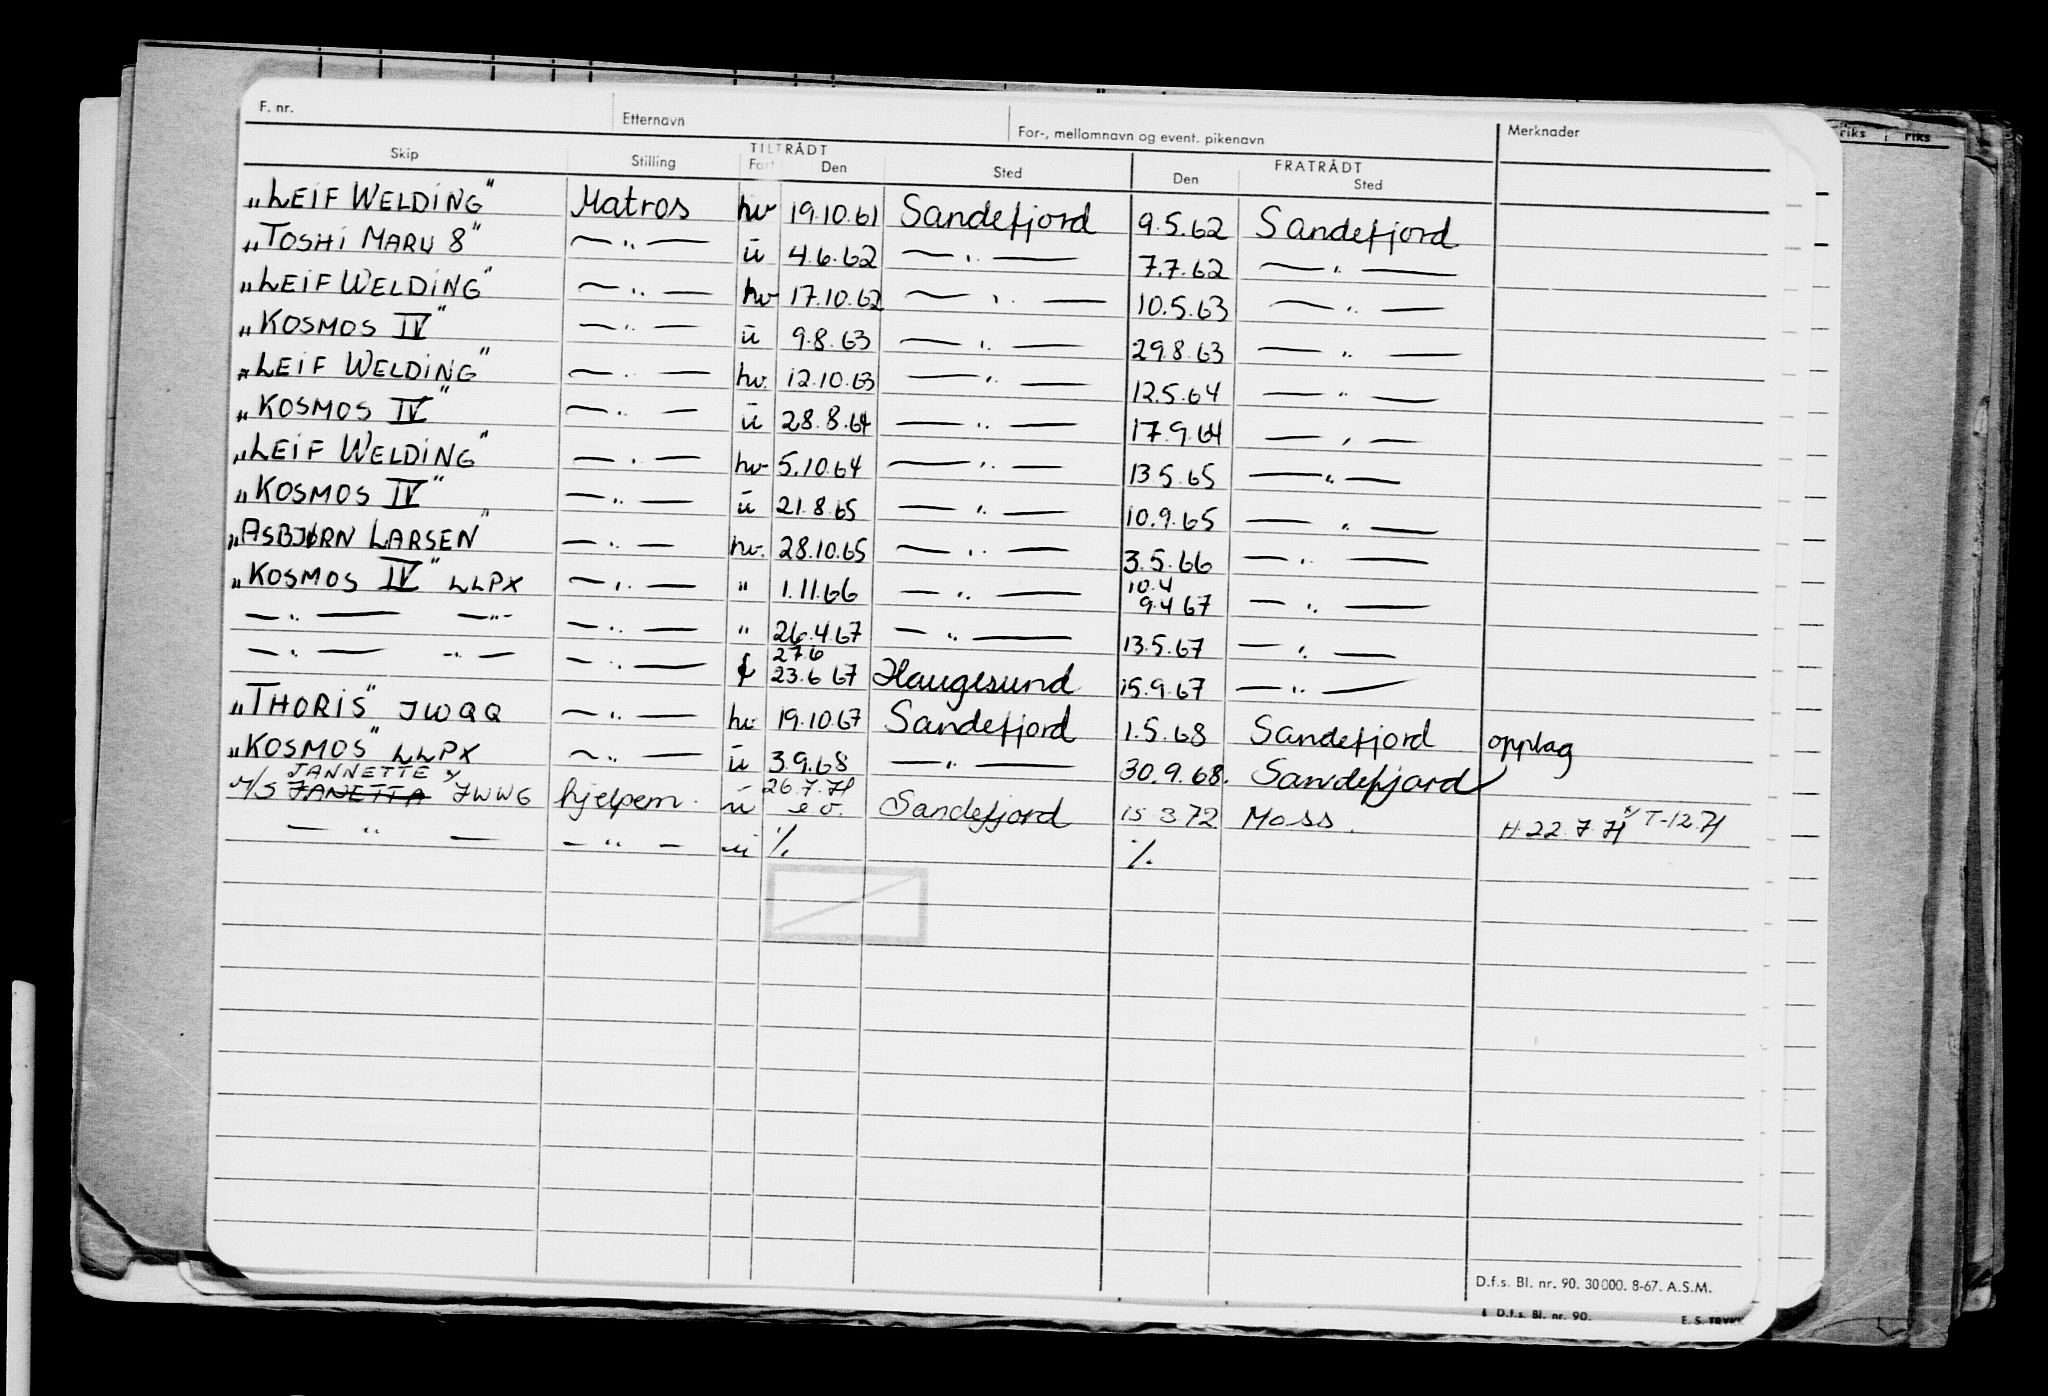 F. nr. Etternavn For-, mellomnavn og event. pikenavn Merknader
Skip Stilling TILTRÅDT Fart Den Sted FRATRÅDT Den Sted
„LEIF WELDING" Matros hv 19.10.61 Sandefjord 9.5.62 Sandefjord
„TOSHI MARU 8" — „ — ū 4.6.62 — „ — 7.7.62 — „ —
„LEIF WELDING" — „ — hv 17.10.62 — „ — 10.5.63 — „ —
„KOSMOS IV" — „ — ū 9.8.63 — „ — 29.8.63 — „ —
„LEIF WELDING" — „ — hv. 12.10.63 — „ — 12.5.64 — „ —
„KOSMOS IV" — „ — ū 28.8.64 — „ — 17.9.64 — „ —
„LEIF WELDING" — „ — hv 5.10.64 — „ — 13.5.65 — „ —
„KOSMOS IV" — „ — ū 21.8.65 — „ — 10.9.65 — „ —
„ASBJØRN LARSEN" — „ — hv. 28.10.65 — „ — 3.5.66 — „ —
„KOSMOS IV" LLPX — „ — " 1.11.66 — „ — 10.4 9.4 67 — „ —
— „ — — „ — — „ — " 26.4.67 — „ — 13.5.67 — „ —
— „ — — „ — — „ — 27.6 23.6 67 Haugesund 15.9.67 — „ —
„THORIS" JWQQ — „ — hv 19.10.67 Sandefjord 1.5.68 Sandefjord opplag
„KOSMOS" LLPX — „ — ū 3.9.68 — „ — 30.9.68. Sandefjord
JANNETTE x/ 26.7.71
M/S JANETTA JWWG hjelpem. ū e o. Sandefjord 15 3 72 Moss. H 22.7.71 x/ T-12.71
— „ — — „ — ū ./. ./.
D.f.s. Bl. nr. 90. 30000. 8-67. A.S.M.
D.f.s. Bl. nr. 90. E. S. TRYK
riks riks